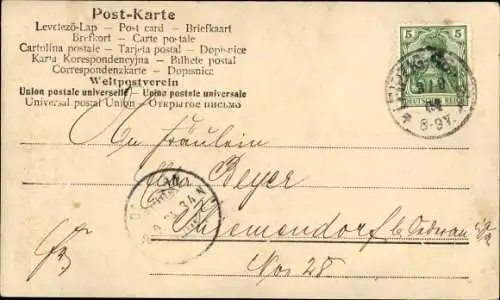 Post-Karte
Levelező-Lap — Post card — Briefkaart
Brefkort — Carte postale
Cartolina postale — Tarjeta postal — Dopisnice
Karta Korespondencyjna — Bilhete postal
Correspondenzkarte — Dopisnica
Weltpostverein
Union postale universelle — Union postale universale
Universal postal Union — Открытое письмо
5 5
DEUTSCHES REICH
8-9V.
An Fräulein
Beyer
Thiemendorf b/ Oederan i/S.
No 28